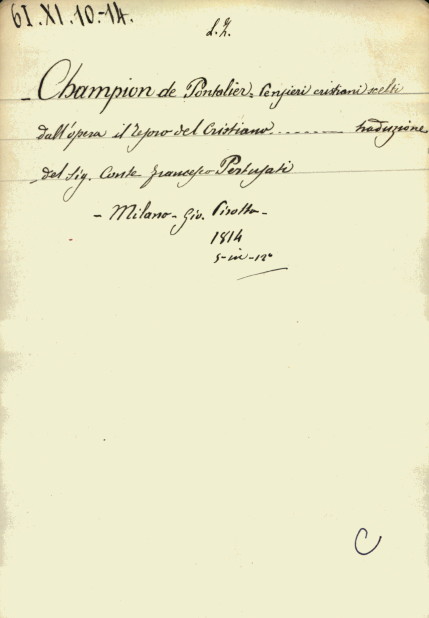 61.XI.10-14.
L.Z.
- Champion de Pontalier = Pensieri cristiani scelti
dall'opera il Tesoro del Cristiano........... traduzione
del Sig. Conte Francesco Pertusati
- Milano - Gio. Pirotta -
1814
5 - in - 12°
C